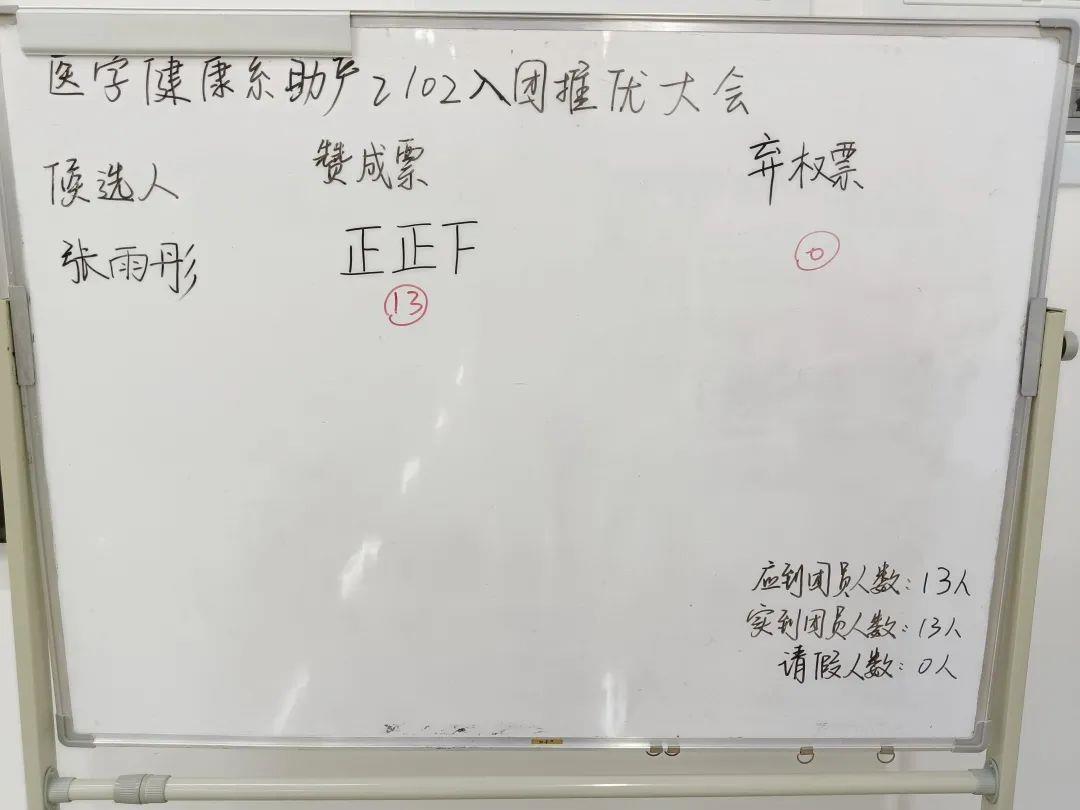 医学健康系助产2102入团推优大会
候选人 赞成票 弃权票
张雨彤 正正下 0
13
应到团员人数：13人
实到团员人数：13人
请假人数：0人